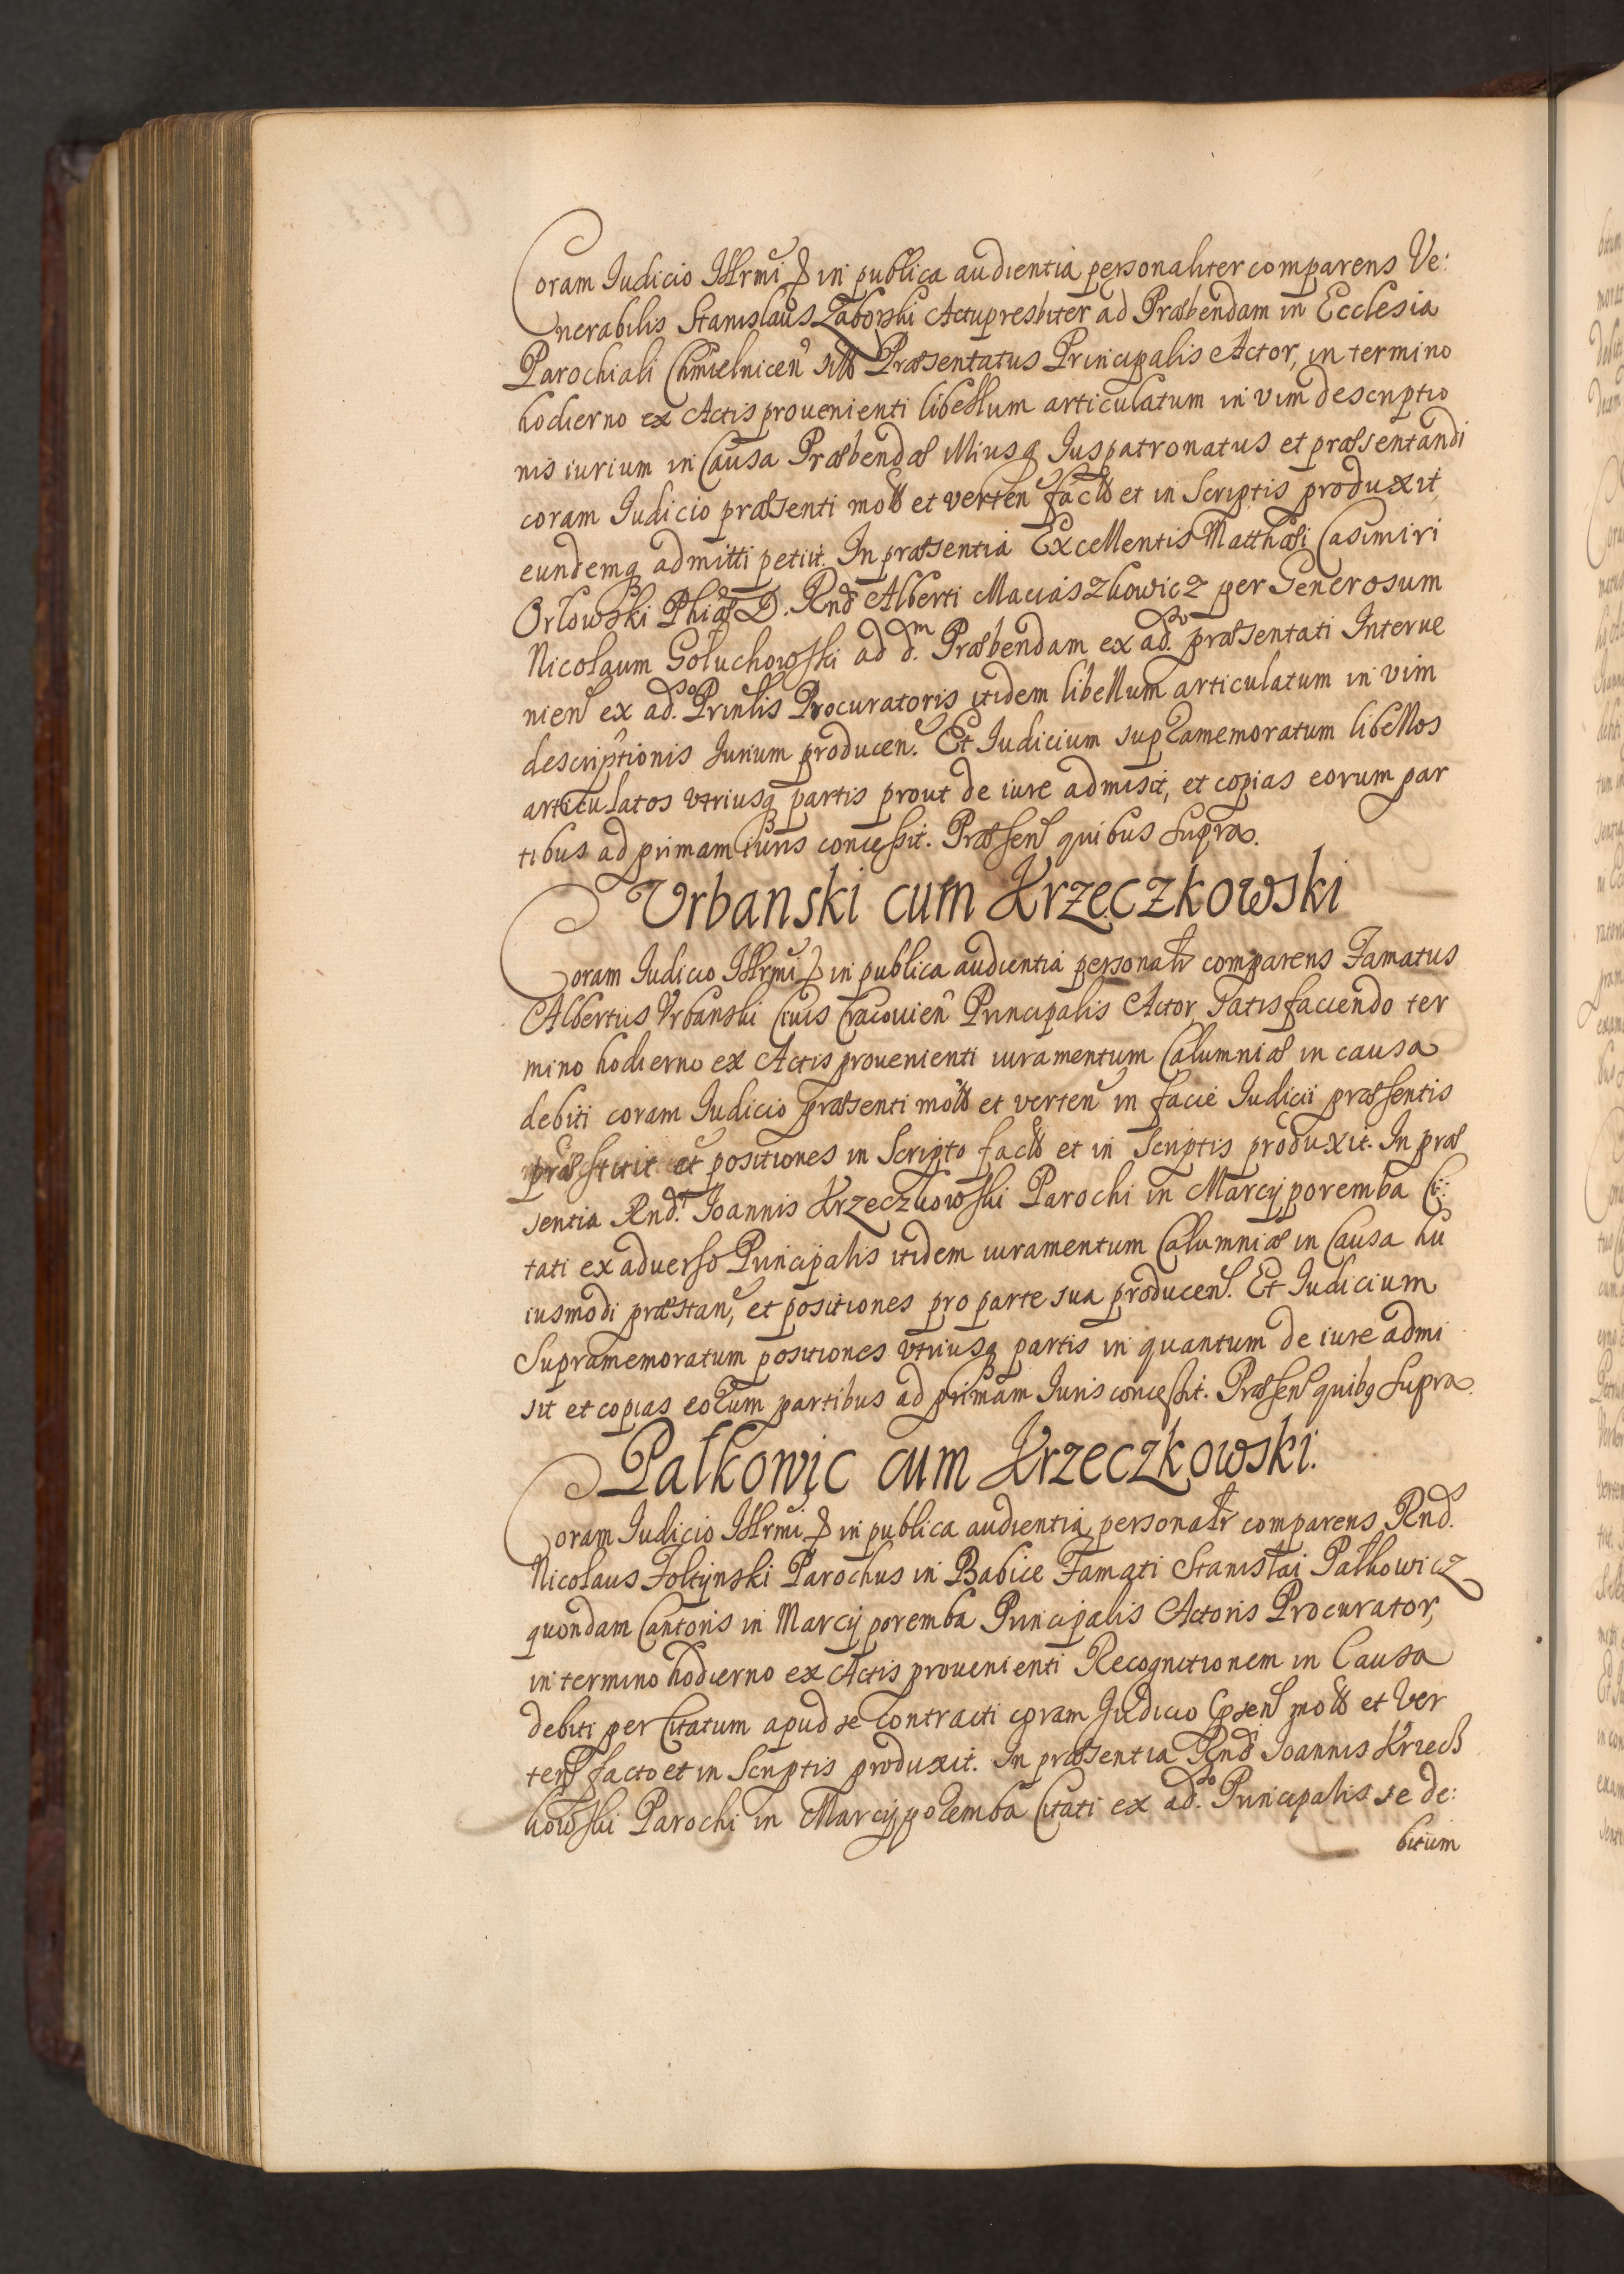 Coram Iudicio Illrmi in publica audientia personaliter comparens Ve:
nerabilis Stanislaus Zaborski Actupresbiter ad Præbendam in Ecclesia
Parochiali Chmielnicen Præsentatus Principalis Actor, in termino
hodierno ex Actis prouenienti libellum articulatum in vim descriptio
nis iurium in Causa Præbendæ Iuspatronatus et præsentandi
coram Iudicio præsenti motæ et verten facto et in Scriptis produxit
eundemq admitti petiit. In præsentia Excellentis Matthæi Casimiri
Orłowski Phiæ D. Rndi Alberti Maciaszkowicz per Generosum
Nicolaum Goluchowski ad d.m Præbendam ex ad.so præsentati Interue
nien ex ad.so Prinlis Procuratoris itidem libellum articulatum in vim
descriptionis Iurium producen. Et Iudicium supramemoratum libellos
articulatos vtriusq partis prout de iure admisit, et copias eorum par
tibus ad primam iuris concessit. Præsen quibus supra.
Vrbanski cum Krzeczkowski
Coram Iudicio Illrmi in publica audientia personalr comparens Famatus
Albertus Vrbanski Ciuis Cracouien Principalis Actor satisfaciendo ter
mino hodierno ex Actis prouenienti iuramentum Calumniæ in causa
debiti coram Iudicio præsenti motæ et verten in facie Iudicii præsentis
præstitit et positiones in Scripto facto et in Scriptis produxit. In præ
sentia Rnd.i Ioannis Krzeczkowski Parochi in Marcyporemba Ci:
tati ex aduerso Principalis itidem iuramentum Calumniæ in Causa hu
iusmodi præstan, et positiones pro parte sua producen. Et Iudicium
Supramemoratum positiones vtriusq partis in quantum de iure admi
sit et copias eorum partibus ad primam Iuris concessit. Præsen quibq supra.
Pałkowic cum Krzeczkowski.
Coram Iudicio Illrmi in publica audientia personalr comparens Rnd.s
Nicolaus Foltynski Parochus in Babice Famati Stanislai Pałkowicz
quondam Cantoris in Marcyporemba Principalis Actoris Procurator,
in termino hodierno ex Actis prouenienti Recognitionem in Causa
debiti per Citatum apud se contracti coram Iudicio psen motæ et Ver
ten facto et in Scriptis produxit. In præsentia Rndi Ioannis Krzecz
kowski Parochi in Marcyporemba Citati ex ad.so Principalis se de:
bitum